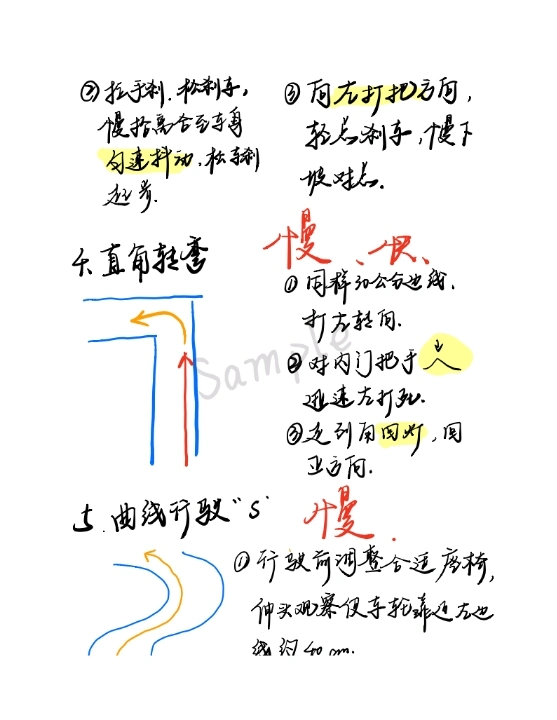 ② 拉手刹、松刹车，
慢抬离合至车身
匀速抖动，松手刹
起步.
③ 向左打把方向，
轻点刹车，慢下
坡对点.
4. 直角转弯
慢、快、
① 同样30公分边线，
打左转向.
② 对内门把手
迅速左打死.
③ 走到 回
正方向.
5. 曲线行驶"S"
慢.
① 行驶前调整合适座椅，
伸头观察使车轮靠近左边
线约40cm.
Sample